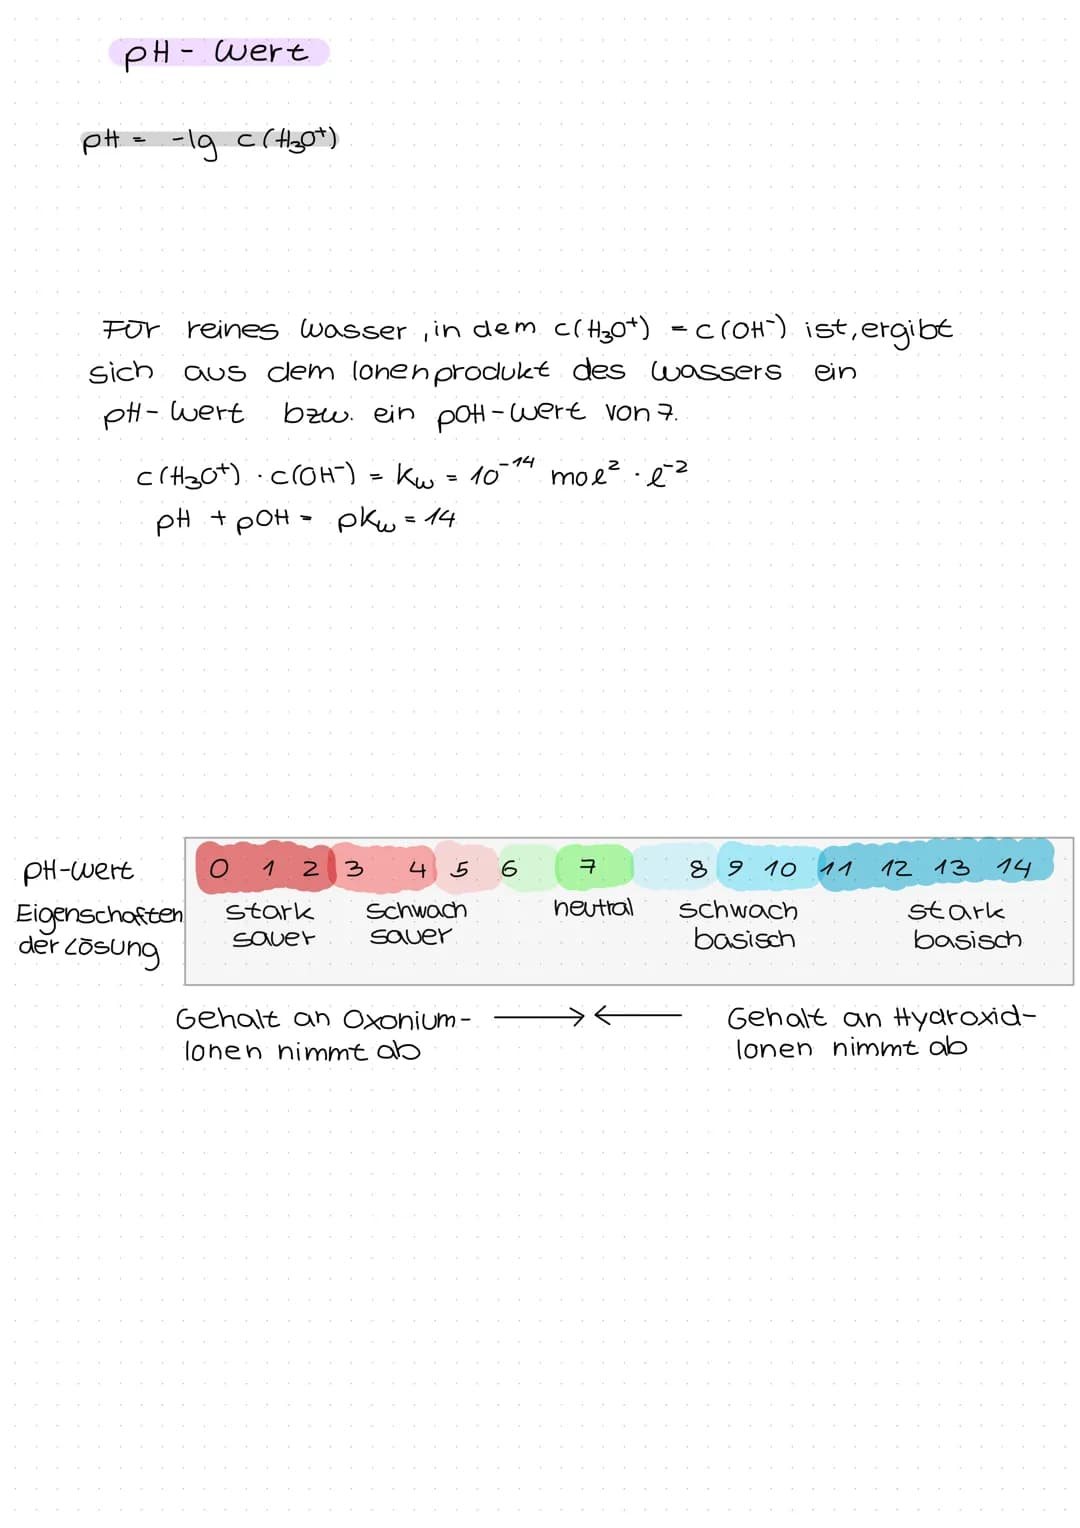 pH - Wert
pH = -lg c(H₃O⁺)
Für reines Wasser, in dem c(H₃O⁺) = c(OH⁻) ist, ergibt
sich aus dem Ionenprodukt des Wassers ein
pH-Wert bzw. ein pOH-Wert von 7.
c(H₃O⁺) · c(OH⁻) = Kw = 10⁻¹⁴ mol² · l⁻²
pH + pOH = pKw = 14
pH-Wert 0 1 2 3 4 5 6 7 8 9 10 11 12 13 14
Eigenschaften stark schwach neutral schwach stark
der Lösung sauer sauer basisch basisch
Gehalt an Oxonium- ⟶ ⟵ Gehalt an Hydroxid-
Ionen nimmt ab Ionen nimmt ab